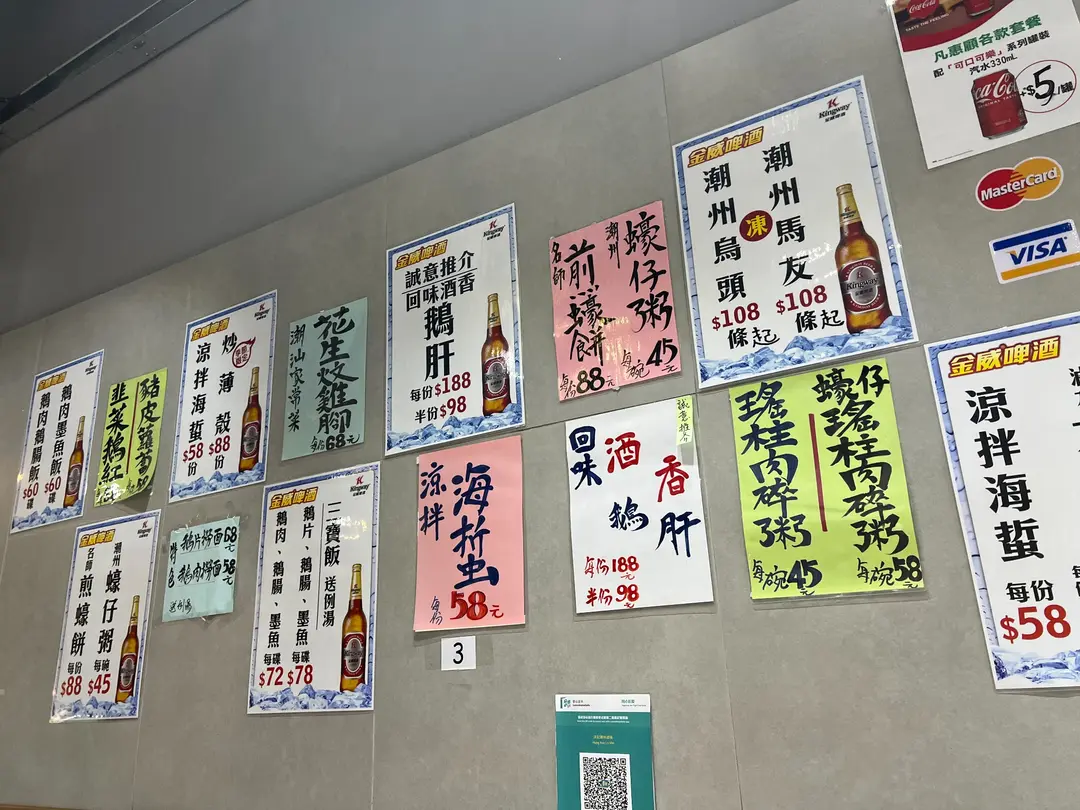 凡惠顧各款套餐
配「可口可樂」系列罐裝
汽水330mL
+$5/罐
Coca-Cola
TASTE THE FEELING
MasterCard
VISA
金威啤酒
Kingway
鵝肉墨魚飯
$60碟
鵝肉鵝腸飯
$60碟
豬皮蘿蔔
韭菜鵝紅
金威啤酒
炒薄殼
$88份
涼拌海蜇
$58份
潮汕家常菜
花生炆雞腳
每份68元
金威啤酒
Kingway
誠意推介
回味酒香
鵝肝
每份$188
半份$98
潮州
蠔仔粥
每碗45元
名師
煎蠔餅
每份88元
金威啤酒
Kingway
潮州馬友
$108
條起
凍
潮州烏頭
$108
條起
金威啤酒
潮州
蠔仔粥
每碗
$45
名師
煎蠔餅
每份
$88
特色
鵝片撈面68元
鵝肉撈面58元
送例湯
金威啤酒
Kingway
三寶飯 送例湯
鵝片、鵝腸、墨魚
每碟
$78
鵝肉、鵝腸、墨魚
每碟
$72
涼拌
海蜇
每份58元
3
誠意推介
回味
酒香
鵝肝
每份188元
半份98元
蠔仔瑤柱肉碎粥
每碗58元
瑤柱肉碎粥
每碗45元
金威啤酒
涼拌海蜇
每份
$58